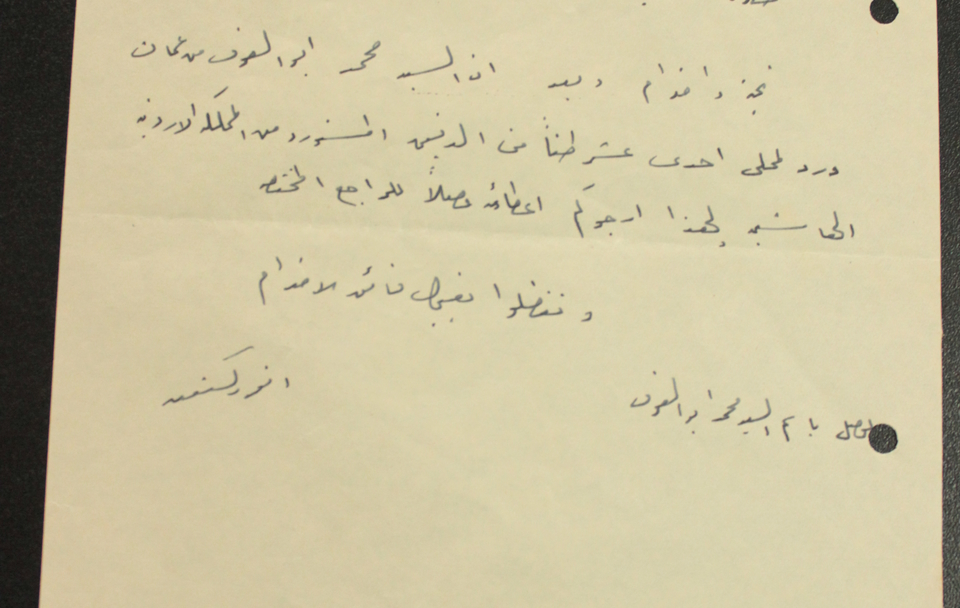 تحية واحترام وبعد ان السيد محمد ابو العوف من عمان
ورد لمحلي احدى عشر طناً من الدبس المستورد من المملكة الاردنية
الهاشمية لهذا ارجوكم اعطائه وصلاً للمراجع المختصة
وتفضلوا بقبول فائق الاحترام
انور
الوصل باسم السيد محمد ابو العوف